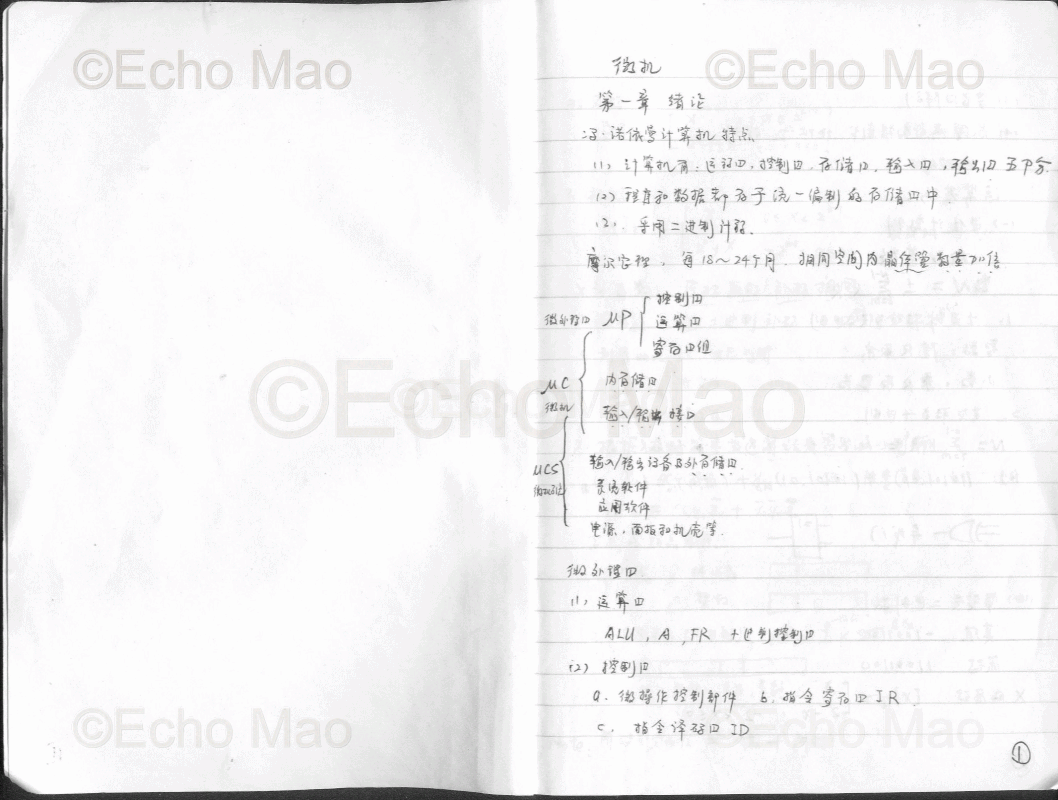 ©Echo Mao
©Echo Mao
微机
第一章 绪论
冯·诺依曼计算机特点
(1) 计算机有:运算口,控制口,存储口,输入口,输出口五部分
(2) 程序和数据都存于统一编制的存储口中
(3). 采用二进制计算.
摩尔定理, 每18~24个月, 相同空间内晶体管数量加倍
控制口
微处理口 μP 运算口
寄存口组
μC 内存储口
微机 输入/输出接口
©Echo Mao
μCS 输入/输出设备及外存储口
微机系统 系统软件
应用软件
电源,面板和机壳等
微处理口
(1) 运算口
ALU, A, FR 十进制控制口
(2) 控制口
a. 微操作控制部件 b. 指令寄存口 IR
c. 指令译码口 ID
©Echo Mao
©Echo Mao
①